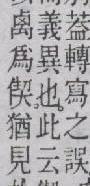 葢轉寫之誤
義異也此云
离爲偰猶見